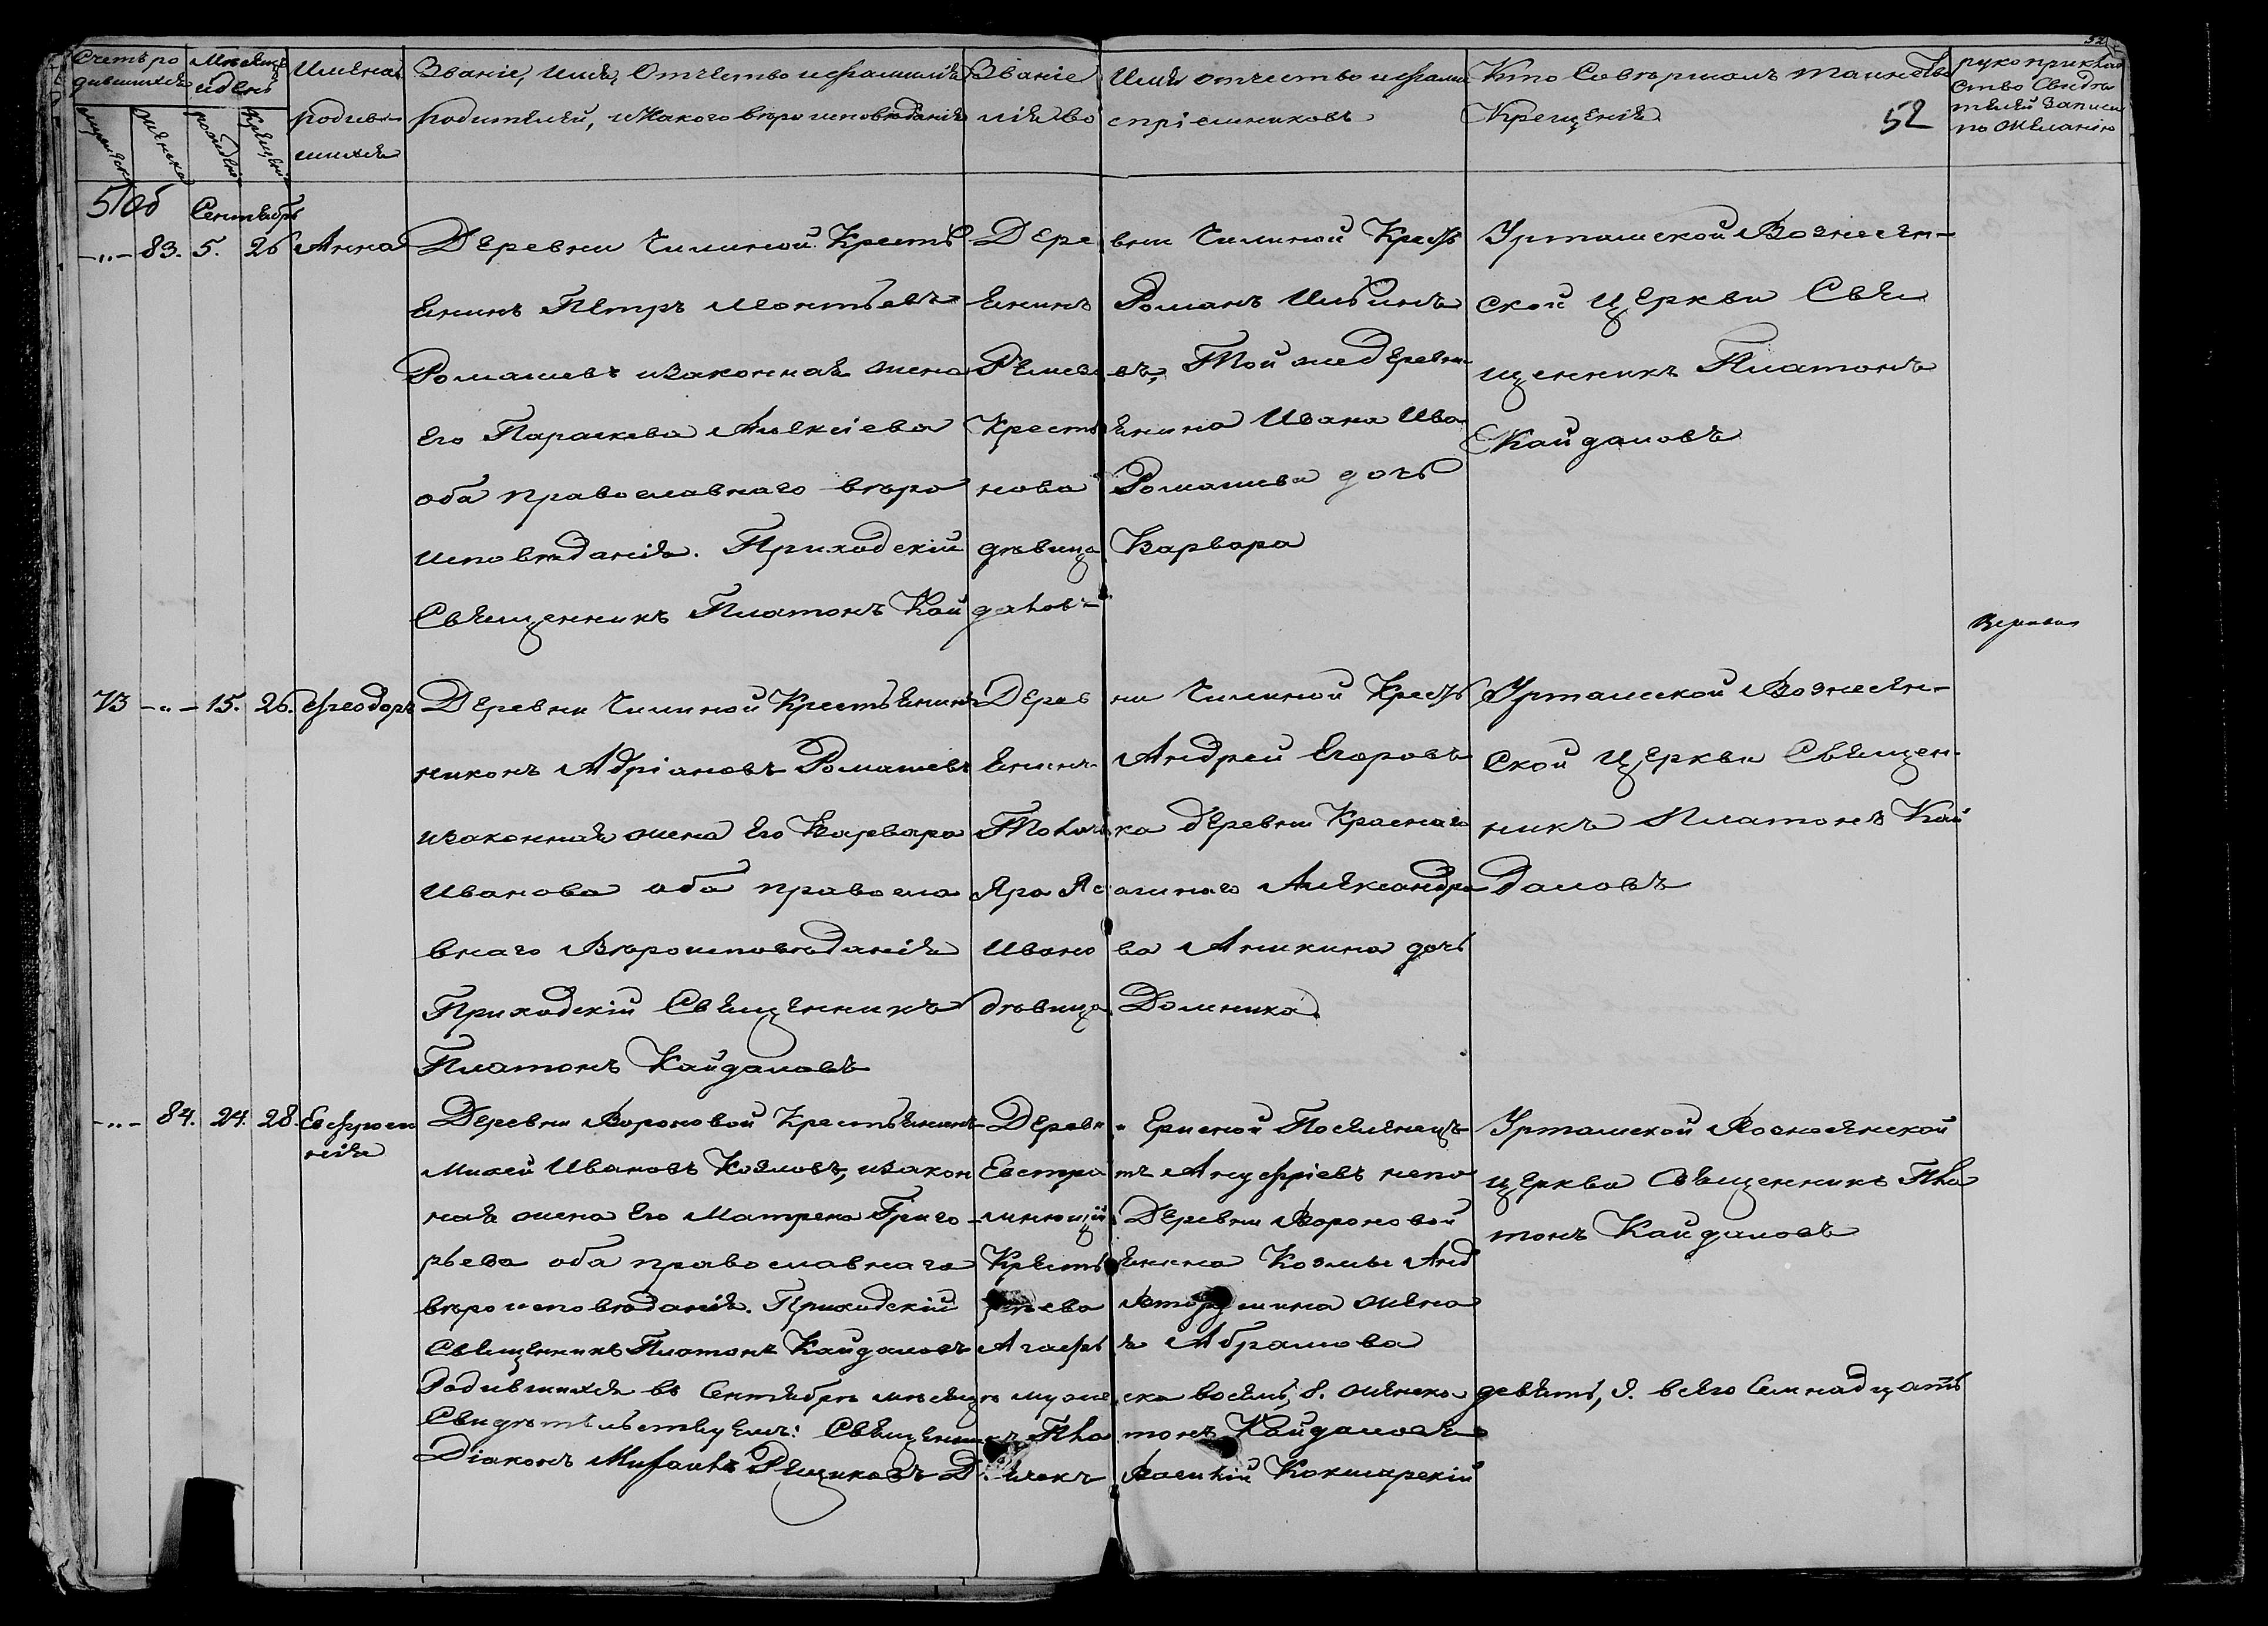 52
Счетъ ро
дившихся
Мѣсяцъ
и день
Имена
родив
шихся
Званіе, Имя, Отчество и фамилія
родителей, и какого вѣроисповѣданія
Званіе Имя отчество и фами
лія во спріемниковъ
Кто Совершалъ таинство
Крещенія
52
рукоприклад
ство Свидѣ
телей записи
по желанію
мужеска
женска
рожденія
крещенія
51об
Сентябрь
-"- 83. 5. 26 Анна
Деревни Чилиной Кресть
янинъ Петръ Леонтьевъ
Ромашевъ и законная жена
Его Параскева Алексіева
оба православнаго вѣро
исповѣданія. Приходскій
Священникъ Платонъ Кайдаловъ
Деревни Чилиной Кресть
янинъ Романъ
той же деревни
Крестьянина Ивана Ива
нова Ромашева дочь
дѣвица Варвара
Урташской Вознесен-
ской Церкви Свя
щенникъ Платонъ
Кайдаловъ
73 -"- 15. 26. Феодоръ
Деревни Чилиной Крестьянинъ
Никонъ Адріановъ Ромашевъ
и законная жена Его Варвара
Иванова оба правосла
внаго Вѣроисповѣданія
Приходскій Священникъ
Платонъ Кайдаловъ
Деревни Чилиной Кресть
янинъ Андрей Егоровъ
деревни Краснаго
Яра Александра
Иванова Аникина дочь
дѣвица Домника
Урташской Вознесен-
ской Церкви Священ-
никъ Платонъ Кай
даловъ
-"- 84. 24. 28. Евфроси
нія
Деревни Вороновой Крестьянинъ
Михей Ивановъ Козловъ, и закон
ная жена Его Матрена Григо-
рьева оба православнаго
вѣроисповѣданія. Приходскій
Священникъ Платонъ Кайдаловъ
Деревни Поселенецъ
Евстратъ Ануфріевъ
Деревни Вороновой
Крестьянина Козьмы Анд
жена
Агафья Абрамова
Урташской Вознесенской
церкви Священникъ Пла
тонъ Кайдаловъ
Родившихся въ Сентябрѣ мѣсяцѣ мужеска восемь, 8. женска девять, 9. всего Семнадцать
Свидѣтельствуемъ: Священникъ Платонъ Кайдаловъ
Діаконъ Михаилъ Василій